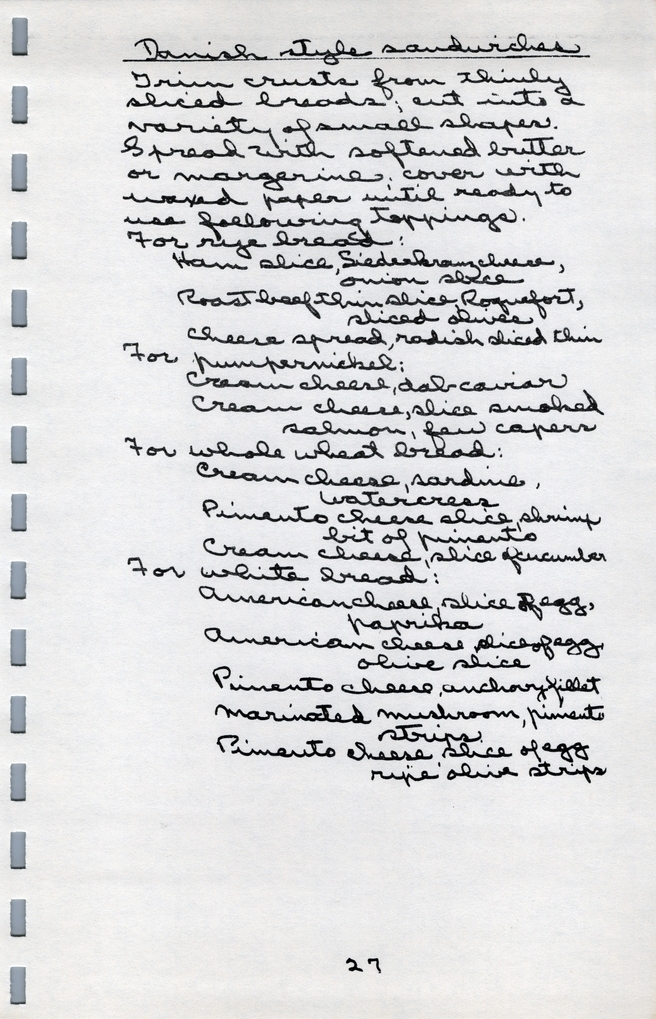 Danish style sandwiches
Trim crusts from thinly
sliced breads; cut into a
variety of small shapes.
Spread with softened butter
or margerine, cover with
waxed paper until ready to
use following toppings.
For rye bread:
Ham slice, Siederkranz cheese,
onion slice
Roast beef thin slice, Roquefort,
sliced olives
Cheese spread, radish sliced thin
For pumpernickel:
Cream cheese, dab caviar
Cream cheese, slice smoked
salmon, few capers
For whole wheat bread:
Cream cheese, sardine,
watercress
Pimento cheese slice, shrimp
bit of pimento
Cream cheese, slice of cucumber
For white bread:
American cheese, slice of egg,
paprika
American cheese, slice of egg,
olive slice
Pimento cheese, anchovy fillet
Marinated mushroom, pimento
strips
Pimento cheese, slice of egg
ripe olive strips
27